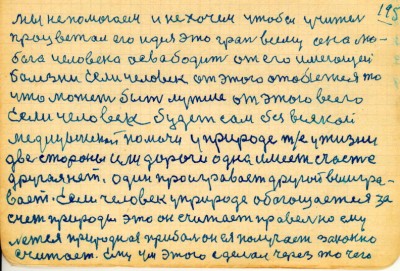 195
мы непомогаем и не хочем чтобы учител
процветал его идея это грап всему она лю-
бога человека асвабодит от его имеющей
болезни Если человек от этого отовется то
что может быт лутше от этого всего
Если человек будет сам без всякой
медицынской помочи у природе т/е у жизни
две стороны или дороги одна имеет счасте
другая нет. один проигравает другой выигра-
вает. Если человек у природе обогощается за
счет природы это он считает правелно ему
дается природная прибал он ея получает законно
считает. Ему мы этого сделал через то чего